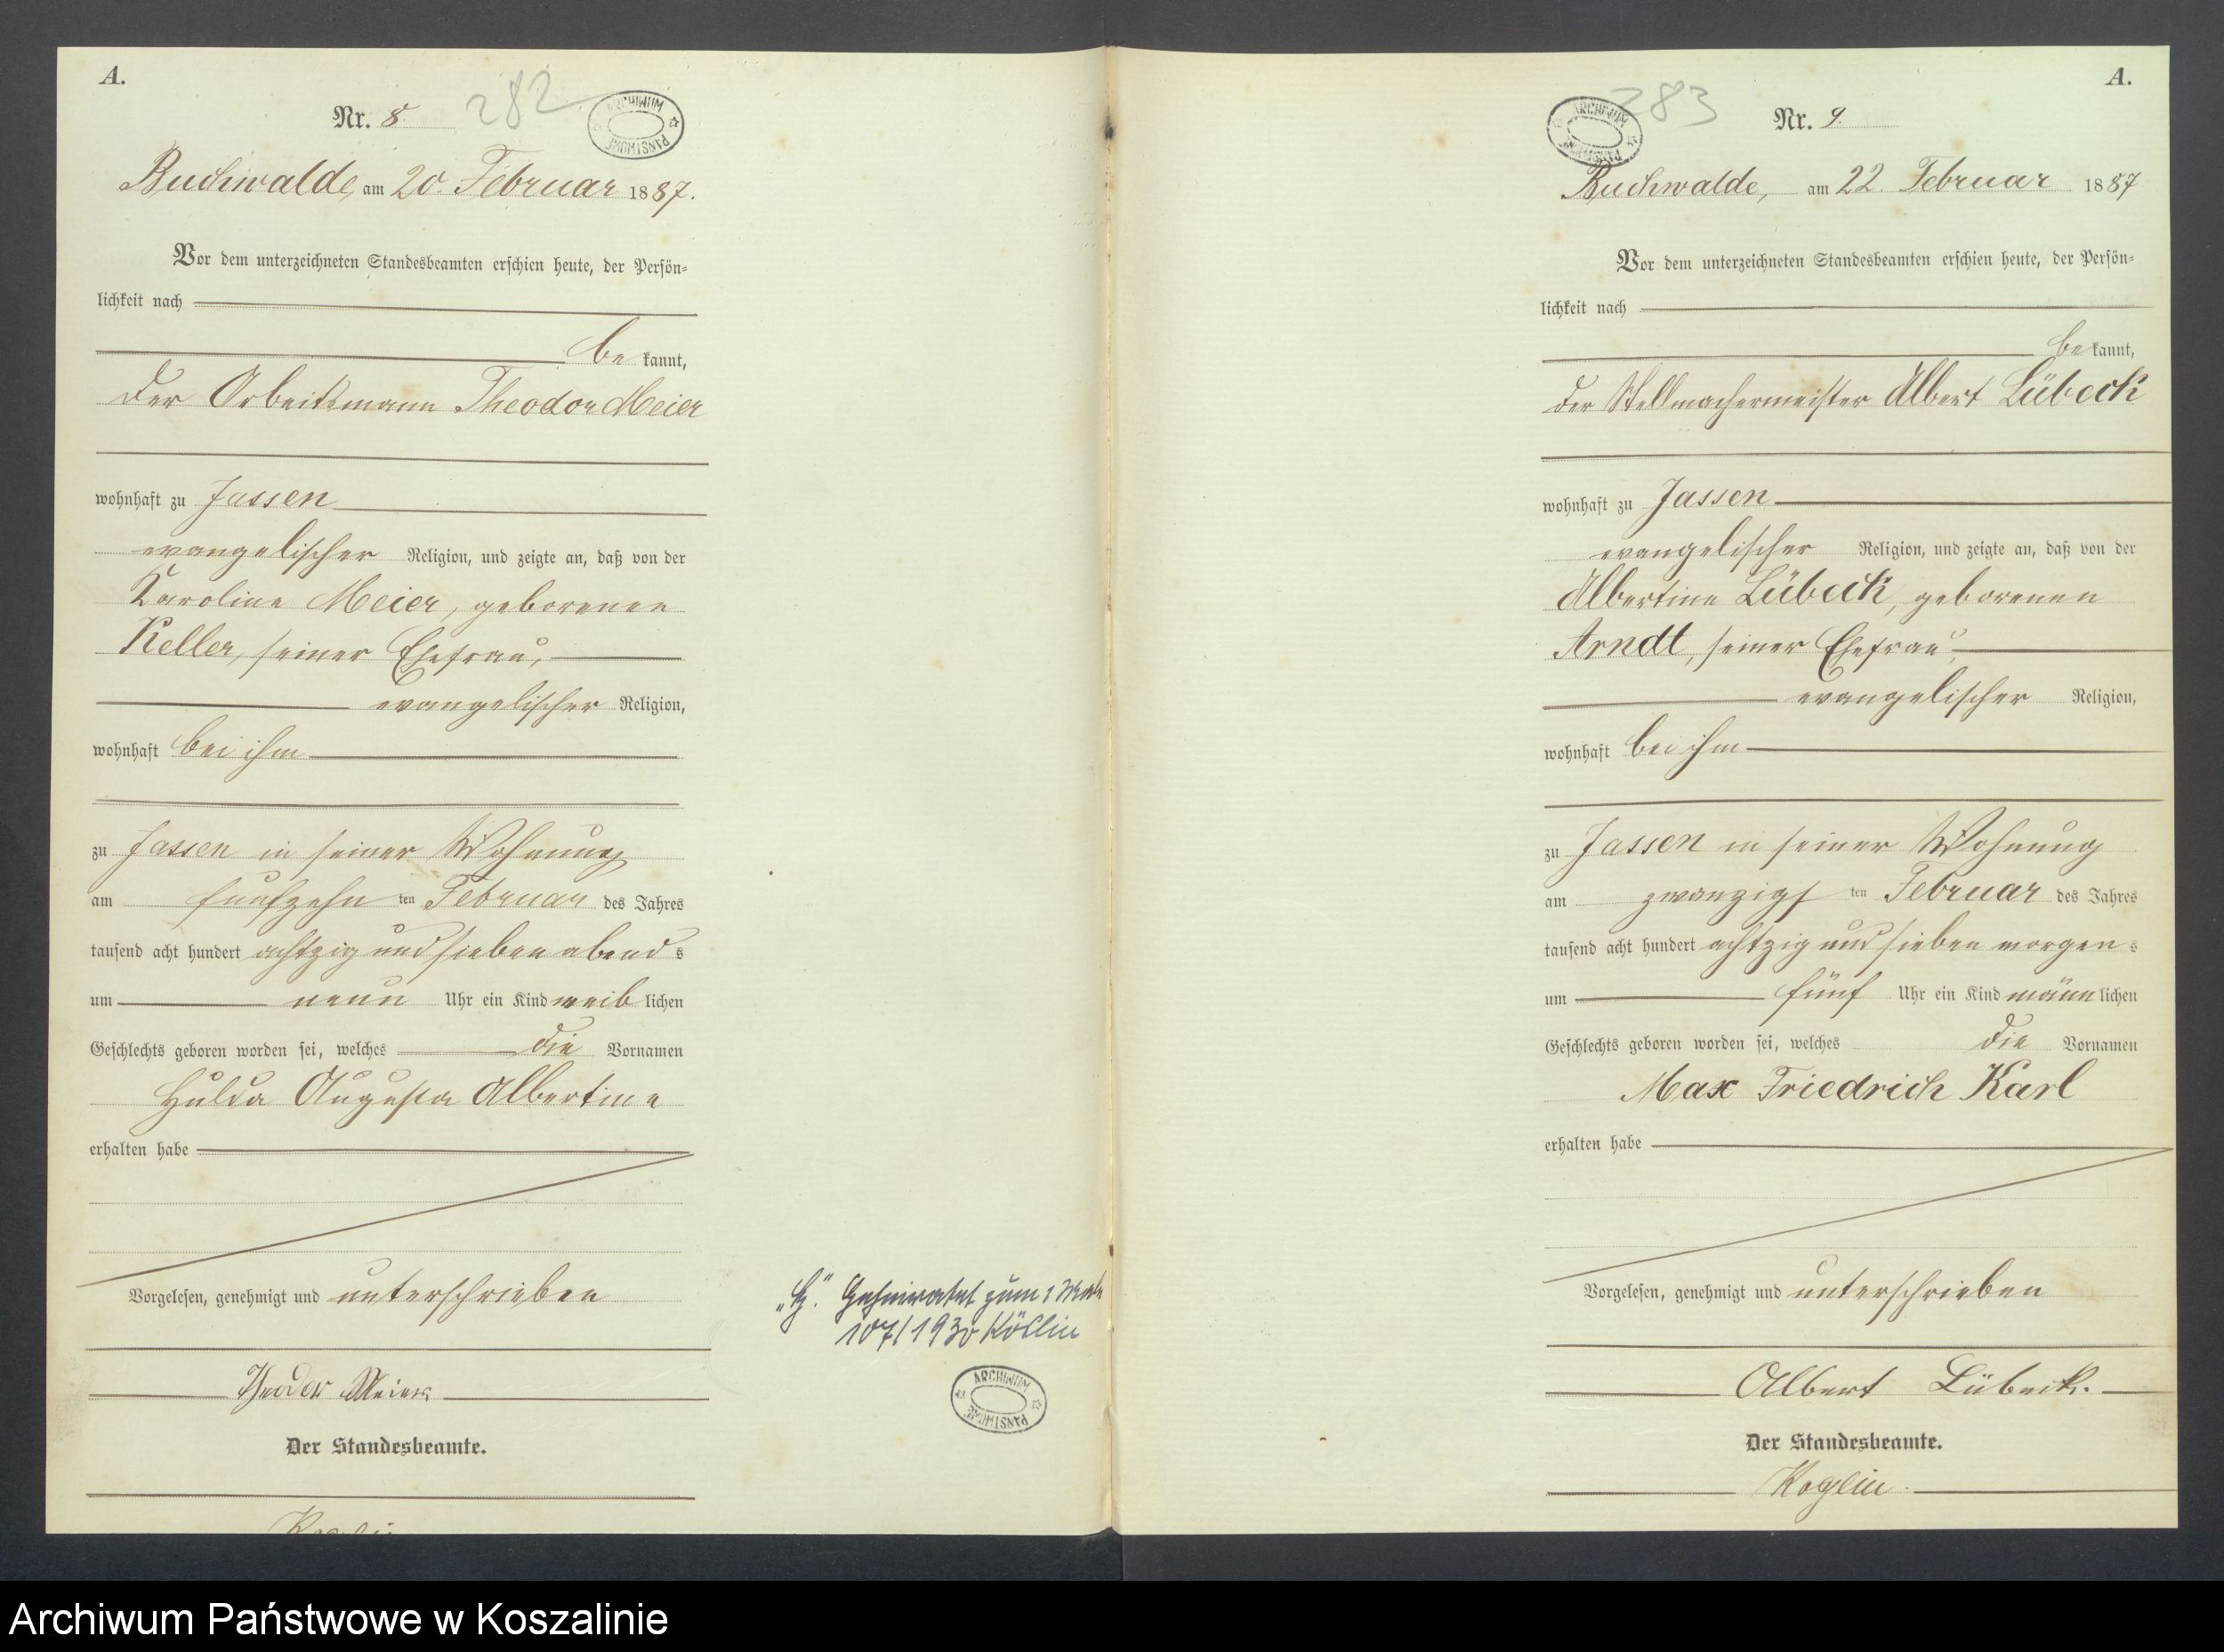 A.
Nr. 8
282
ARCHIWUM PAŃSTWOWE
Buchwalde, am 20. Februar 1887.
Vor dem unterzeichneten Standesbeamten erschien heute, der Persön-
lichkeit nach
be kannt,
der Arbeitsmann Theodor Meier
wohnhaft zu Jassen
evangelischer Religion, und zeigte an, daß von der
Karoline Meier, geborenen
Keller, seiner Ehefrau,
evangelischer Religion,
wohnhaft bei ihm
zu Jassen in seiner Wohnung
am fünfzehn ten Februar des Jahres
tausend acht hundert achtzig und sieben abend s
um neun Uhr ein Kind weib lichen
Geschlechts geboren worden sei, welches die Vornamen
Hulda Augusta Albertine
erhalten habe
Vorgelesen, genehmigt und unterschrieben
Theodor Meier
Der Standesbeamte.
Koglin
„H." Geheiratet zum 1 Male
107/1930 Köslin
ARCHIWUM PAŃSTWOWE
A.
283
Nr. 9.
ARCHIWUM PAŃSTWOWE
Buchwalde, am 22. Februar 1887
Vor dem unterzeichneten Standesbeamten erschien heute, der Persön-
lichkeit nach
be kannt,
der Stellmachermeister Albert Lübeck
wohnhaft zu Jassen
evangelischer Religion, und zeigte an, daß von der
Albertine Lübeck, geborenen
Arndt, seiner Ehefrau,
evangelischer Religion,
wohnhaft bei ihm
zu Jassen in seiner Wohnung
am zwanzigs ten Februar des Jahres
tausend acht hundert achtzig und sieben morgen s
um fünf Uhr ein Kind männ lichen
Geschlechts geboren worden sei, welches die Vornamen
Max Friedrich Karl
erhalten habe
Vorgelesen, genehmigt und unterschrieben
Albert Lübeck.
Der Standesbeamte.
Koglin.
Archiwum Państwowe w Koszalinie